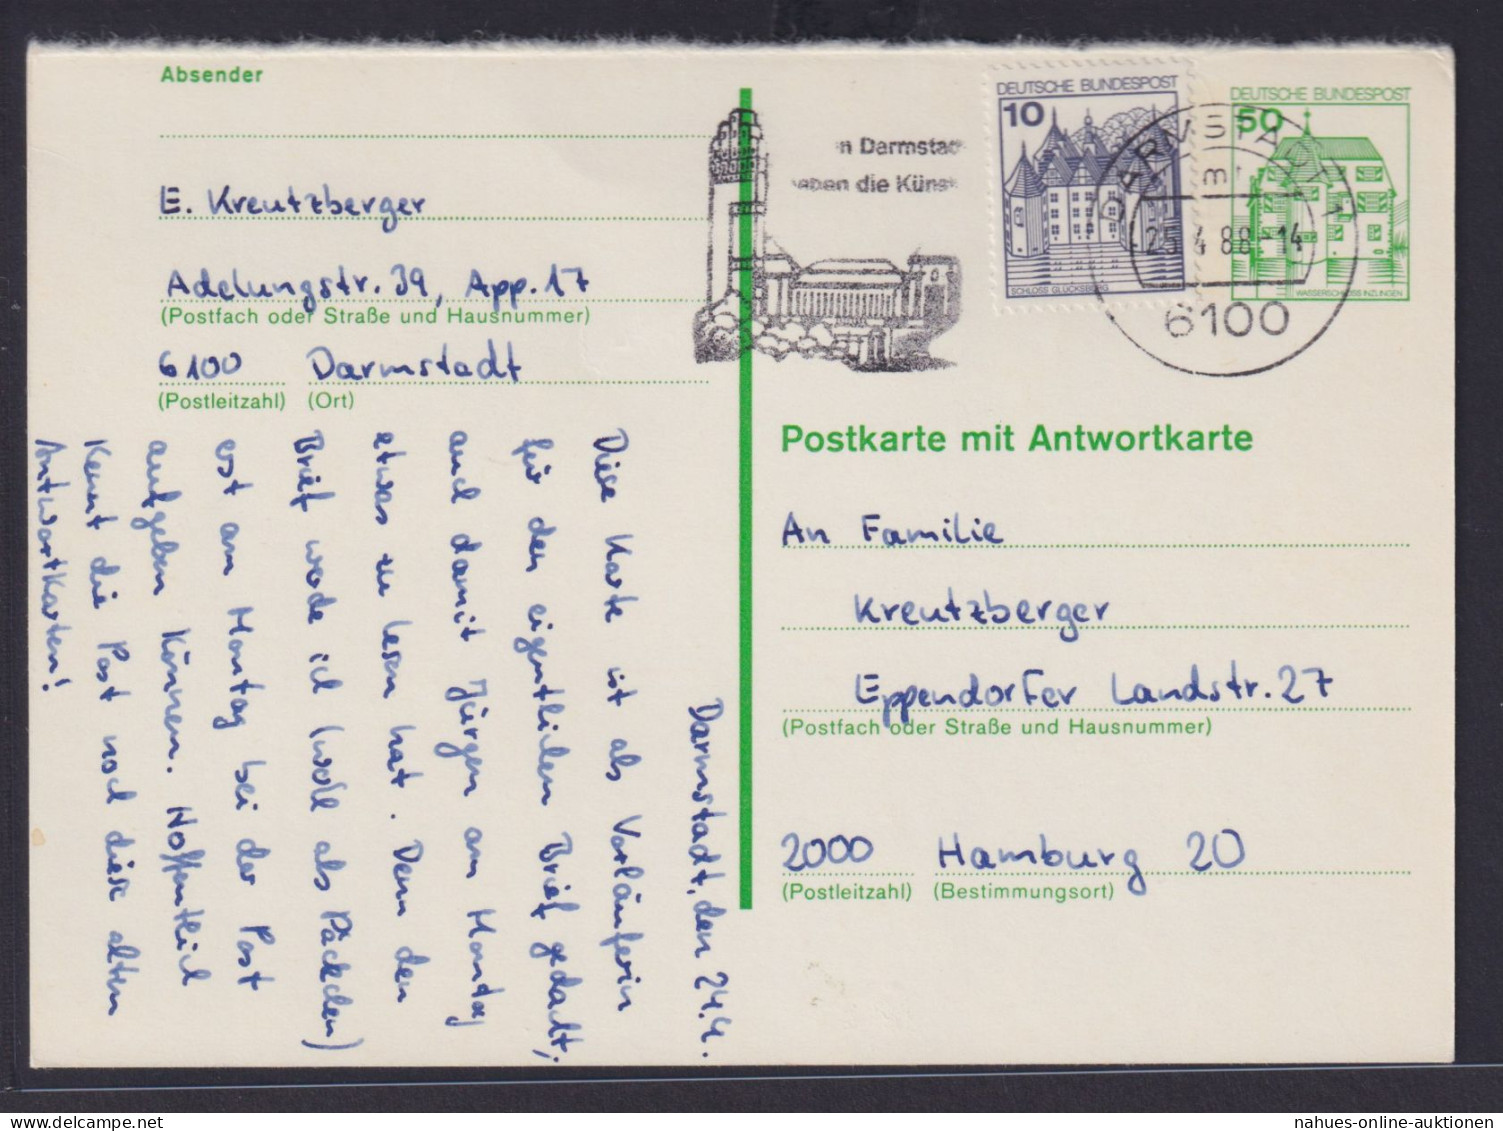 Absender
E. Kreutzberger
Adelungstr. 39, App. 17
(Postfach oder Straße und Hausnummer)
6100 Darmstadt
(Postleitzahl) (Ort)
Darmstadt, den 24.4.
Diese Karte ist als Vorläuferin
für den eigentlichen Brief gedacht,
und damit Jürgen am Montag
etwas zu lesen hat. Denn den
Brief werde ich (wohl als Päckchen)
erst am Montag bei der Post
aufgeben können. Hoffentlich
kennt die Post noch diese alten
Antwortkarten!
n Darmstad
eben die Küns
DEUTSCHE BUNDESPOST
10
SCHLOSS GLÜCKSBURG
DEUTSCHE BUNDESPOST
50
WASSERSCHLOSS INZLINGEN
DARMSTADT 1
25.4.88-14
6100
Postkarte mit Antwortkarte
An Familie
Kreutzberger
Eppendorfer Landstr. 27
(Postfach oder Straße und Hausnummer)
2000 Hamburg 20
(Postleitzahl) (Bestimmungsort)
nahues-online-auktionen